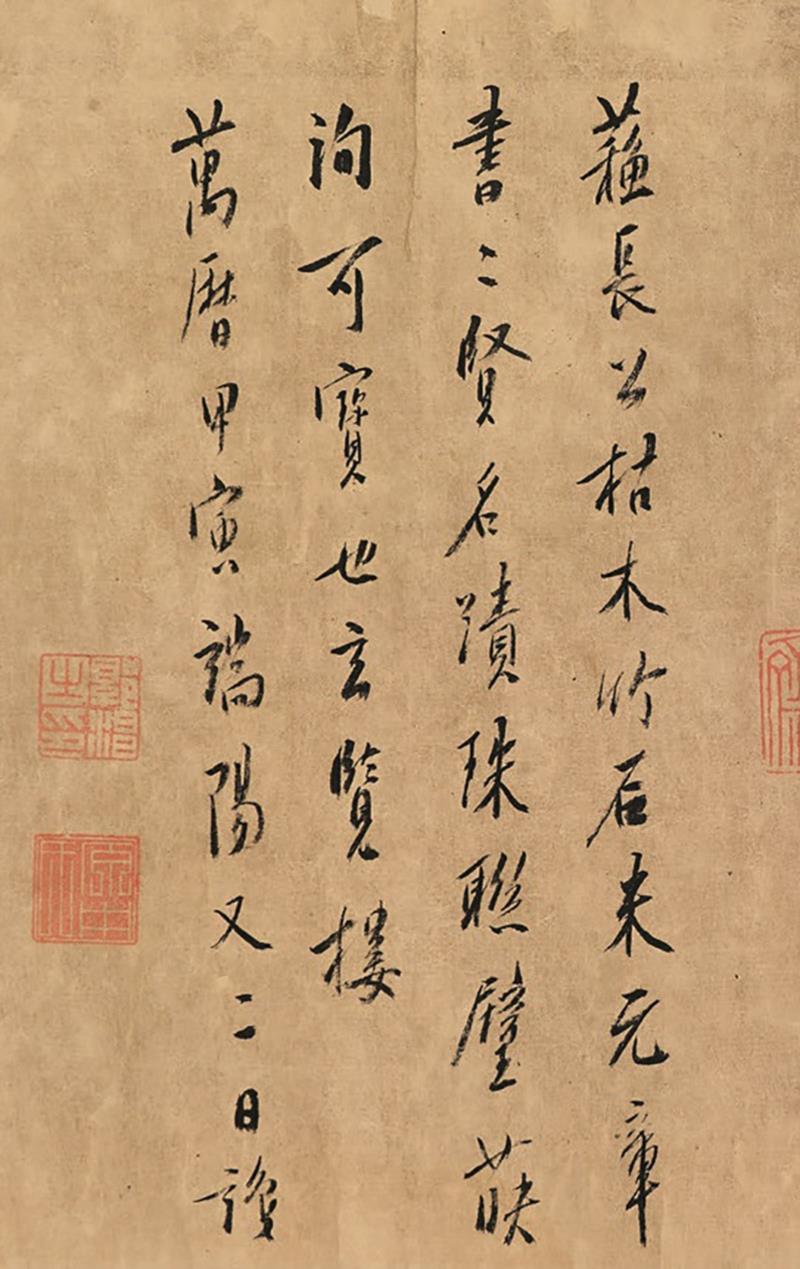 蘇長公枯木竹石米元章
書二賢名蹟珠聯璧暎
詢可寶也玄覽樓
萬曆甲寅端陽又二日